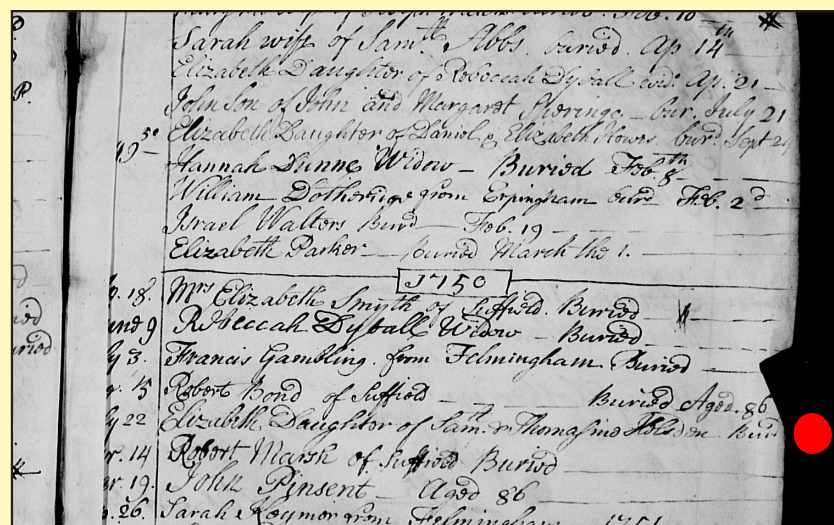 Feb. 10
Sarah wife of Samll. Abbs. buried. Ap 14th
Elizabeth Daughter of Rebeccah Dyball Ap. 21
John Son of John and Margaret bur. July 21
Elizabeth Daughter of Daniel & Elizabeth Howes. burd. Sept 24
49 50 Hannah Dunne Widow - Buried Feb. 8th
William from Erpingham burd Feb. 2d
Israel Walters Burd Feb. 19
Elizabeth Parker Buried March the 1.
1750
18 Mrs Elizabeth Smyth of Suffield. Buried
9 Rebeccah Dyball Widow - Buried
3. Francis Gambling. from Felmingham Buried
15 Robert Bond of Suffield Buried Aged. 86
22 Elizabeth Daughter of Sam. & Thomasine Burd
14 Robert Marsh of Suffield Buried
19. John Pinsent - Aged 86
26. Sarah from Felmingham 1751